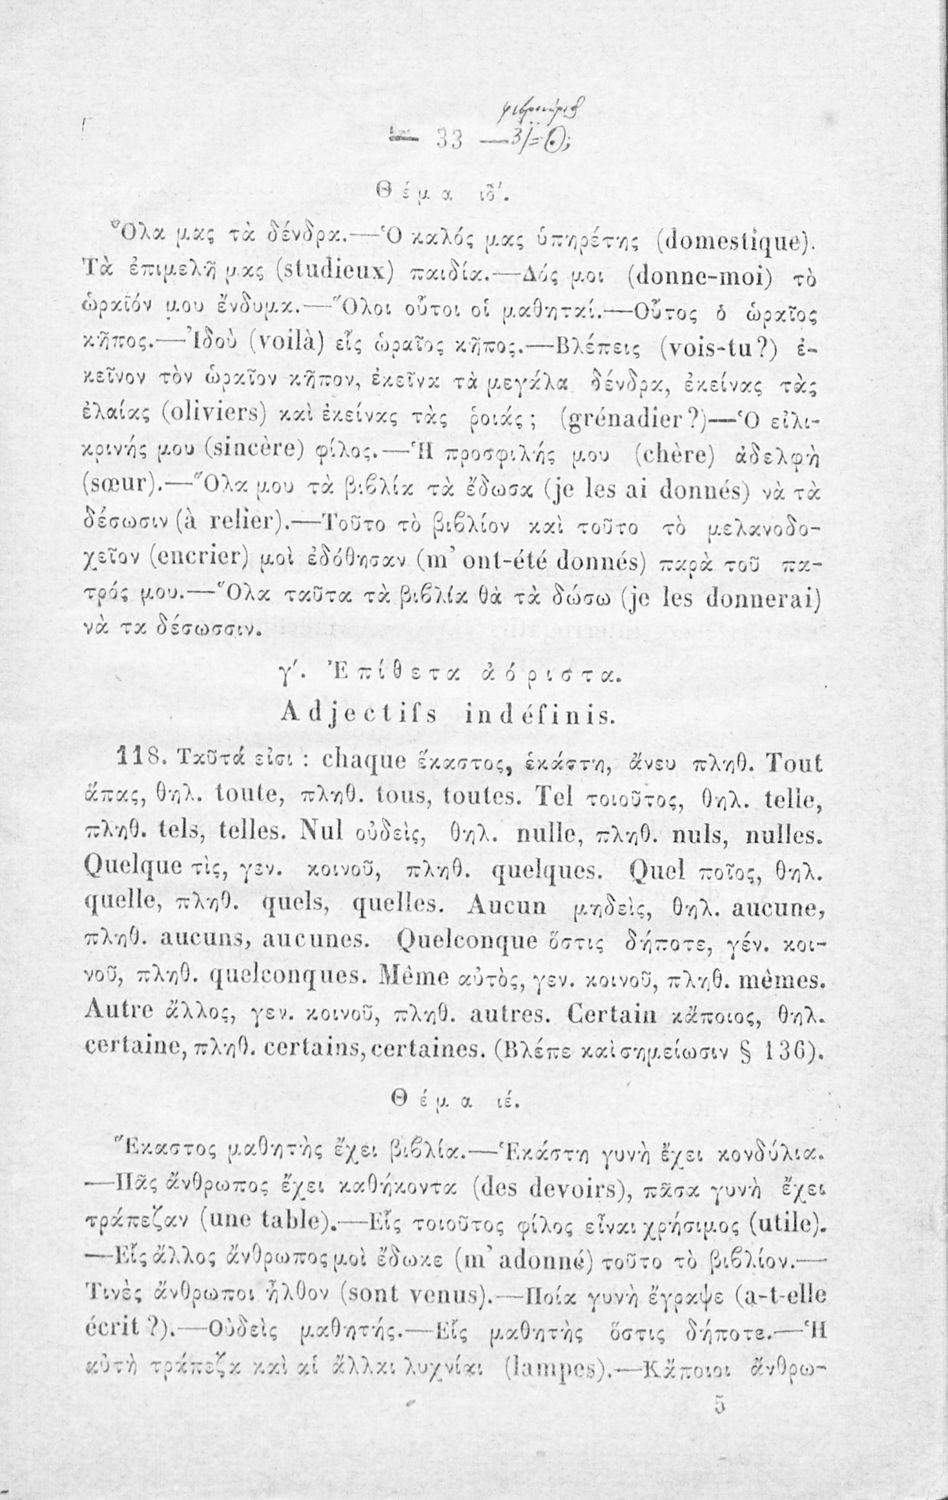 — 33 —
Θέμα ιδ΄.
Ὅλα μας τὰ δένδρα.—Ὁ καλός μας ὑπηρέτης (domestique).
Τὰ ἐπιμελῆ μας (studieux) παιδία.—Δός μοι (donne-moi) τὸ
ὡραῖόν μου ἔνδυμα.—Ὅλοι οὗτοι οἱ μαθηταί.—Οὗτος ὁ ὡραῖος
κῆπος.—Ἰδοὺ (voilà) εἷς ὡραῖος κῆπος.—Βλέπεις (vois-tu?) ἐ-
κεῖνον τὸν ὡραῖον κῆπον, ἐκεῖνα τὰ μεγάλα δένδρα, ἐκείνας τὰς
ἐλαίας (oliviers) καὶ ἐκείνας τὰς ῥοιάς; (grénadier?)—Ὁ εἰλι-
κρινής μου (sincère) φίλος.—Ἡ προσφιλής μου (chère) ἀδελφὴ
(sœur).—Ὅλα μου τὰ βιβλία τὰ ἔδωσα (je les ai donnés) νὰ τὰ
δέσωσιν (à relier).—Τοῦτο τὸ βιβλίον καὶ τοῦτο τὸ μελανοδο-
χεῖον (encrier) μοὶ ἐδόθησαν (m' ont-été donnés) παρὰ τοῦ πα-
τρός μου.—Ὅλα ταῦτα τὰ βιβλία θὰ τὰ δώσω (je les donnerai)
νὰ τα δέσωσσιν.
γ΄. Ἐπίθετα ἀόριστα.
Adjectifs indéfinis.
118. Ταῦτά εἰσι : chaque ἕκαστος, ἑκάστη, ἄνευ πληθ. Tout
ἅπας, θηλ. toute, πληθ. tous, toutes. Tel τοιοῦτος, θηλ. telle,
πληθ. tels, telles. Nul οὐδεὶς, θηλ. nulle, πληθ. nuls, nulles.
Quelque τὶς, γεν. κοινοῦ, πληθ. quelques. Quel ποῖος, θηλ.
quelle, πληθ. quels, quelles. Aucun μηδεὶς, θηλ. aucune,
πληθ. aucuns, aucunes. Quelconque ὅστις δήποτε, γέν. κοι-
νοῦ, πληθ. quelconques. Même αὐτὸς, γεν. κοινοῦ, πληθ. mêmes.
Autre ἄλλος, γεν. κοινοῦ, πληθ. autres. Certain κἄποιος, θηλ.
certaine, πληθ. certains, certaines. (Βλέπε καὶ σημείωσιν § 136).
Θέμα ιέ.
Ἕκαστος μαθητὴς ἔχει βιβλία.—Ἑκάστη γυνὴ ἔχει κονδύλια.
—Πᾶς ἄνθρωπος ἔχει καθήκοντα (des devoirs), πᾶσα γυνὴ ἔχει
τράπεζαν (une table).—Εἷς τοιοῦτος φίλος εἶναι χρήσιμος (utile).
—Εἷς ἄλλος ἄνθρωπος μοὶ ἔδωκε (m' a donné) τοῦτο τὸ βιβλίον.—
Τινὲς ἄνθρωποι ἦλθον (sont venus).—Ποία γυνὴ ἔγραψε (a-t-elle
écrit?).—Οὐδεὶς μαθητής.—Εἷς μαθητὴς ὅστις δήποτε.—Ἡ
αὐτὴ τράπεζα καὶ αἱ ἄλλαι λυχνίαι (lampes).—Κἄποιοι ἄνθρω-
5